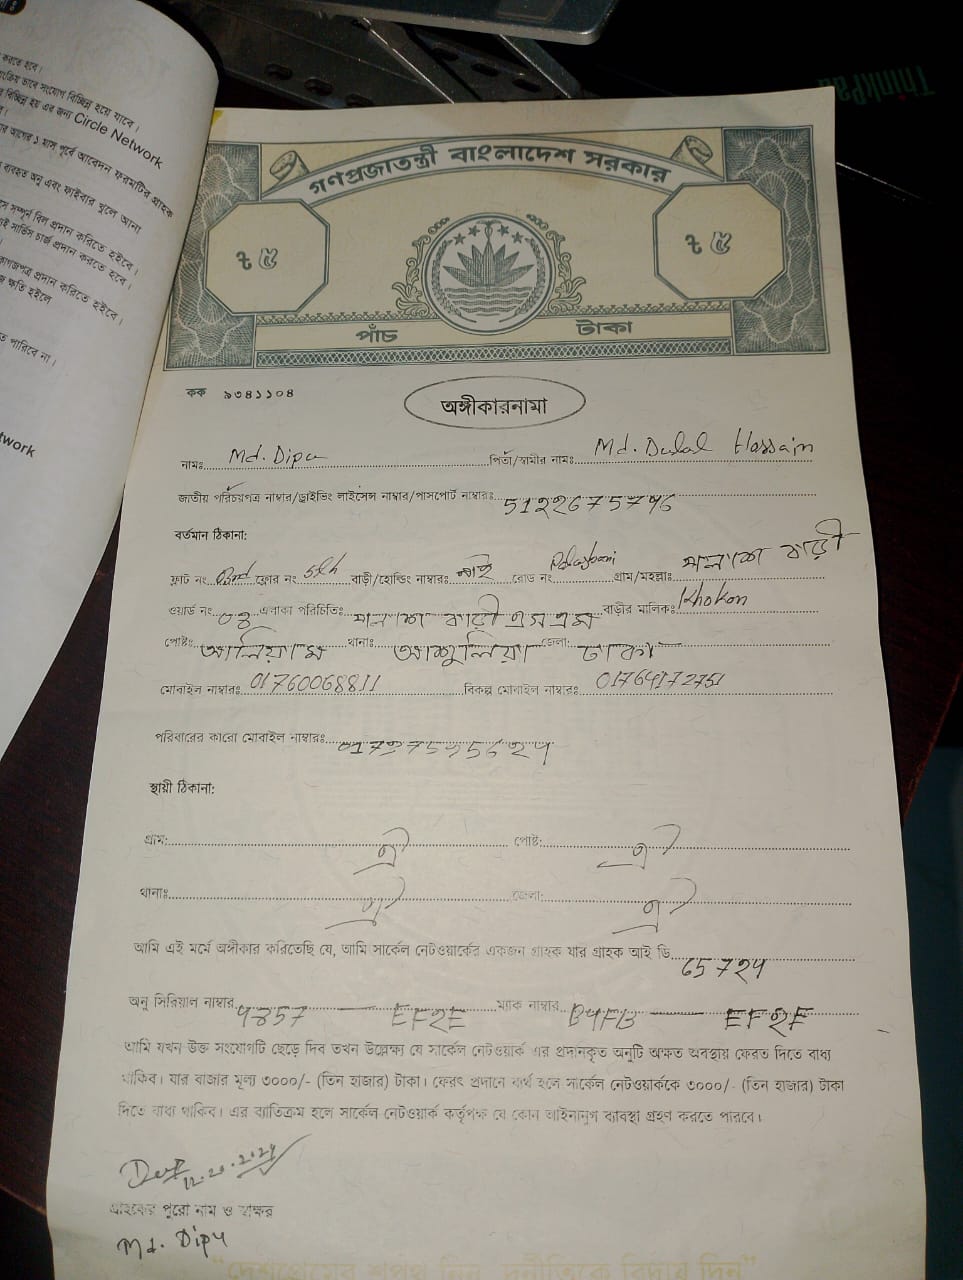 করতে হবে।
সংযোগ বিচ্ছিন্ন হয়ে যাবে।
বিচ্ছিন্ন হয় এর জন্য Circle Network
১ মাস পূর্বে আবেদন ফরমটির গ্রাহক
ব্যবহৃত অনু এবং ফাইবার খুলে আনা
সম্পূর্ন বিল প্রদান করিতে হইবে।
সার্ভিস চার্জ প্রদান করতে হবে।
প্রদান করিতে হইবে।
ক্ষতি হইলে
পারিবে না।
twork
ThinkPad
গণপ্রজাতন্ত্রী বাংলাদেশ সরকার
৳ ৫
৳ ৫
পাঁচ টাকা
কক ৯৩৪১১০৪
অঙ্গীকারনামা
নামঃ Md. Dipu পিতা/স্বামীর নামঃ Md. Dulal Hossain
জাতীয় পরিচয়পত্র নাম্বার/ড্রাইভিং লাইসেন্স নাম্বার/পাসপোর্ট নাম্বারঃ
বর্তমান ঠিকানা:
ফ্লাট নং ফ্লোর নং 5th বাড়ী/হোল্ডিং নাম্বারঃ নাই রোড নং Palashbari গ্রাম/মহল্লাঃ পলাশ বাড়ী
ওয়ার্ড নং এলাকা পরিচিতিঃ পলাশ বাড়ী এস এম বাড়ীর মালিকঃ Khokon
পোষ্টঃ থানাঃ আশুলিয়া জেলা: ঢাকা
মোবাইল নাম্বারঃ 01760068811 বিকল্প মোবাইল নাম্বারঃ 01764172751
পরিবারের কারো মোবাইল নাম্বারঃ
স্থায়ী ঠিকানা:
গ্রাম: ঐ পোষ্ট: ঐ
থানাঃ ঐ জেলা: ঐ
আমি এই মর্মে অঙ্গীকার করিতেছি যে, আমি সার্কেল নেটওয়ার্কের একজন গ্রাহক যার গ্রাহক আই ডি
অনু সিরিয়াল নাম্বার ম্যাক নাম্বার
আমি যখন উক্ত সংযোগটি ছেড়ে দিব তখন উল্লেক্ষ্য যে সার্কেল নেটওয়ার্ক এর প্রদানকৃত অনুটি অক্ষত অবস্থায় ফেরত দিতে বাধ্য
থাকিব। যার বাজার মূল্য ৩০০০/- (তিন হাজার) টাকা। ফেরৎ প্রদানে ব্যর্থ হলে সার্কেল নেটওয়ার্ককে ৩০০০/- (তিন হাজার) টাকা
দিতে বাধ্য থাকিব। এর ব্যতিক্রম হলে সার্কেল নেটওয়ার্ক কর্তৃপক্ষ যে কোন আইনানুগ ব্যবস্থা গ্রহণ করতে পারবে।
গ্রাহকের পুরো নাম ও স্বাক্ষর
Md. Dipu
“দেশপ্রেমের শপথ নিন, দুর্নীতিকে বিদায় দিন”